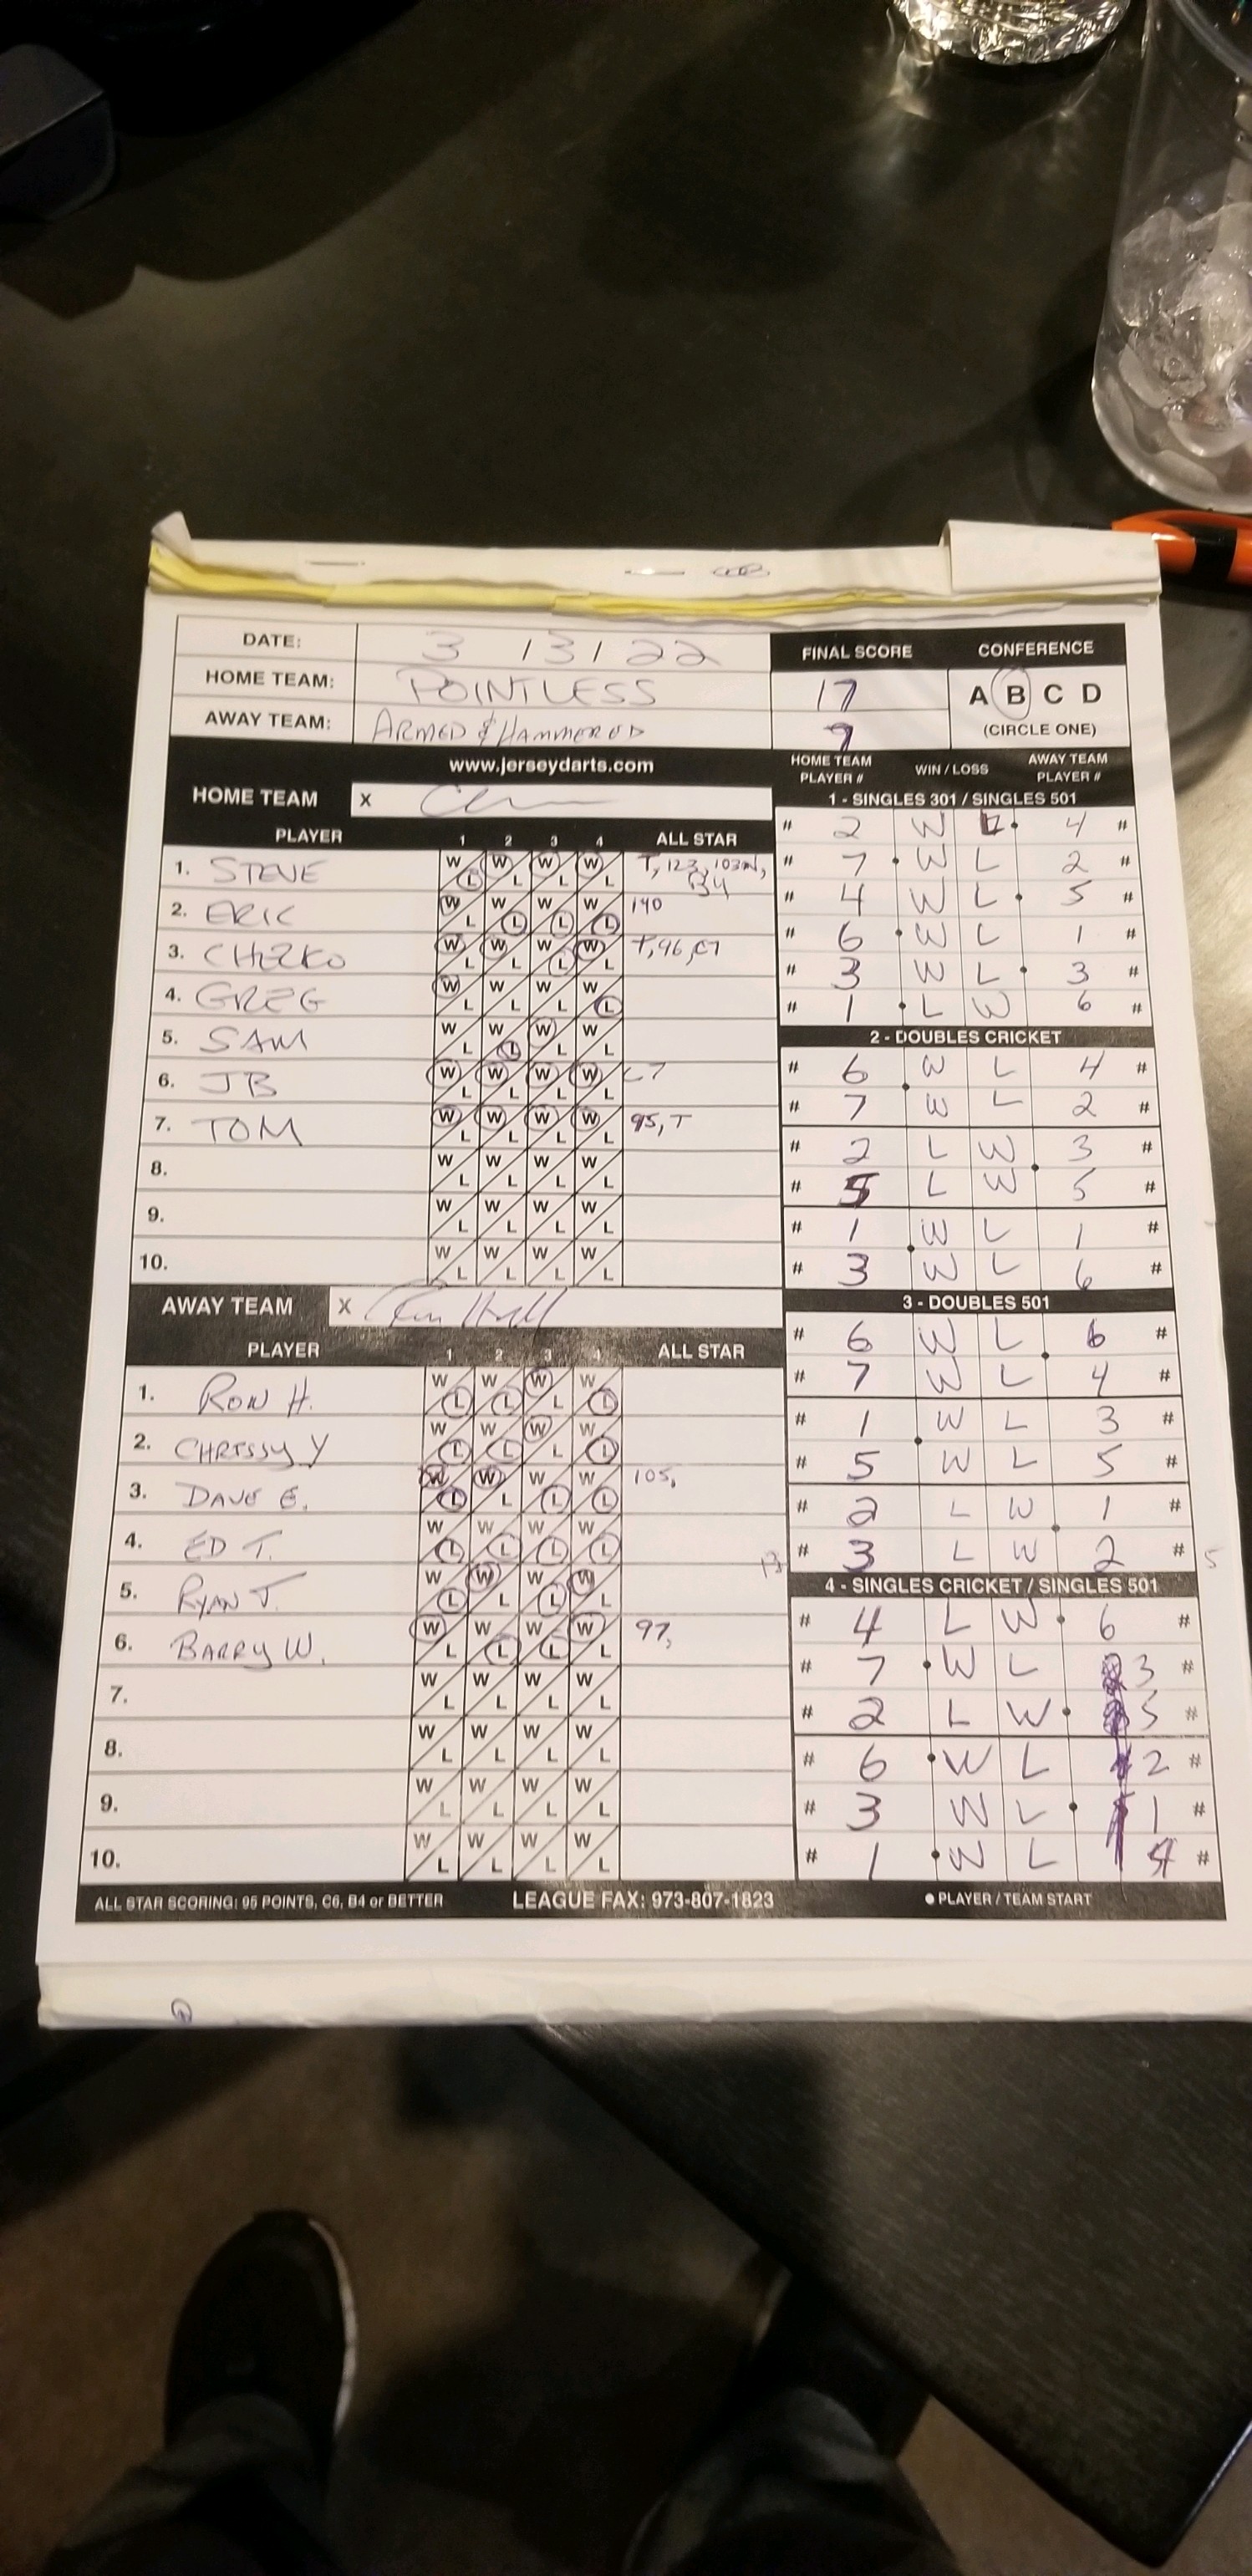 DATE: 3 13 1 22
HOME TEAM: POINTLESS
AWAY TEAM: ARMED & HAMMERED
FINAL SCORE
17
9
CONFERENCE
A B C D
(CIRCLE ONE)
www.jerseydarts.com
HOME TEAM X
PLAYER 1 2 3 4 ALL STAR
1. STEVE W L W L W L W L T, 123, 103IN,
B4
2. ERIC W L W L W L W L 140
3. CHEZKO W L W L W L W L T, 96, C7
4. GREG W L W L W L W L
5. SAM W L W L W L W L
6. JB W L W L W L W L C7
7. TOM W L W L W L W L 95, T
8. W L W L W L W L
9. W L W L W L W L
10. W L W L W L W L
AWAY TEAM X
PLAYER 1 2 3 4 ALL STAR
1. RON H. W L W L W L W L
2. CHRISSY Y W L W L W L W L
3. DAVE E. W L W L W L W L 105,
4. ED T. W L W L W L W L
5. RYAN J. W L W L W L W L
6. BARRY W. W L W L W L W L 97,
7. W L W L W L W L
8. W L W L W L W L
9. W L W L W L W L
10. W L W L W L W L
HOME TEAM PLAYER # WIN / LOSS AWAY TEAM PLAYER #
1 - SINGLES 301 / SINGLES 501
# 2 W L 4 #
# 7 W L 2 #
# 4 W L 5 #
# 6 W L 1 #
# 3 W L 3 #
# 1 L W 6 #
2 - DOUBLES CRICKET
# 6 W L 4 #
# 7 W L 2 #
# 2 L W 3 #
# 5 L W 5 #
# 1 W L 1 #
# 3 W L 6 #
3 - DOUBLES 501
# 6 W L 6 #
# 7 W L 4 #
# 1 W L 3 #
# 5 W L 5 #
# 2 L W 1 #
13 # 3 L W 2 # 5
4 - SINGLES CRICKET / SINGLES 501
# 4 L W 6 #
# 7 W L 3 #
# 2 L W 5 #
# 6 W L 2 #
# 3 W L 1 #
# 1 W L 4 #
ALL STAR SCORING: 95 POINTS, C6, B4 or BETTER LEAGUE FAX: 973-807-1823 ● PLAYER / TEAM START